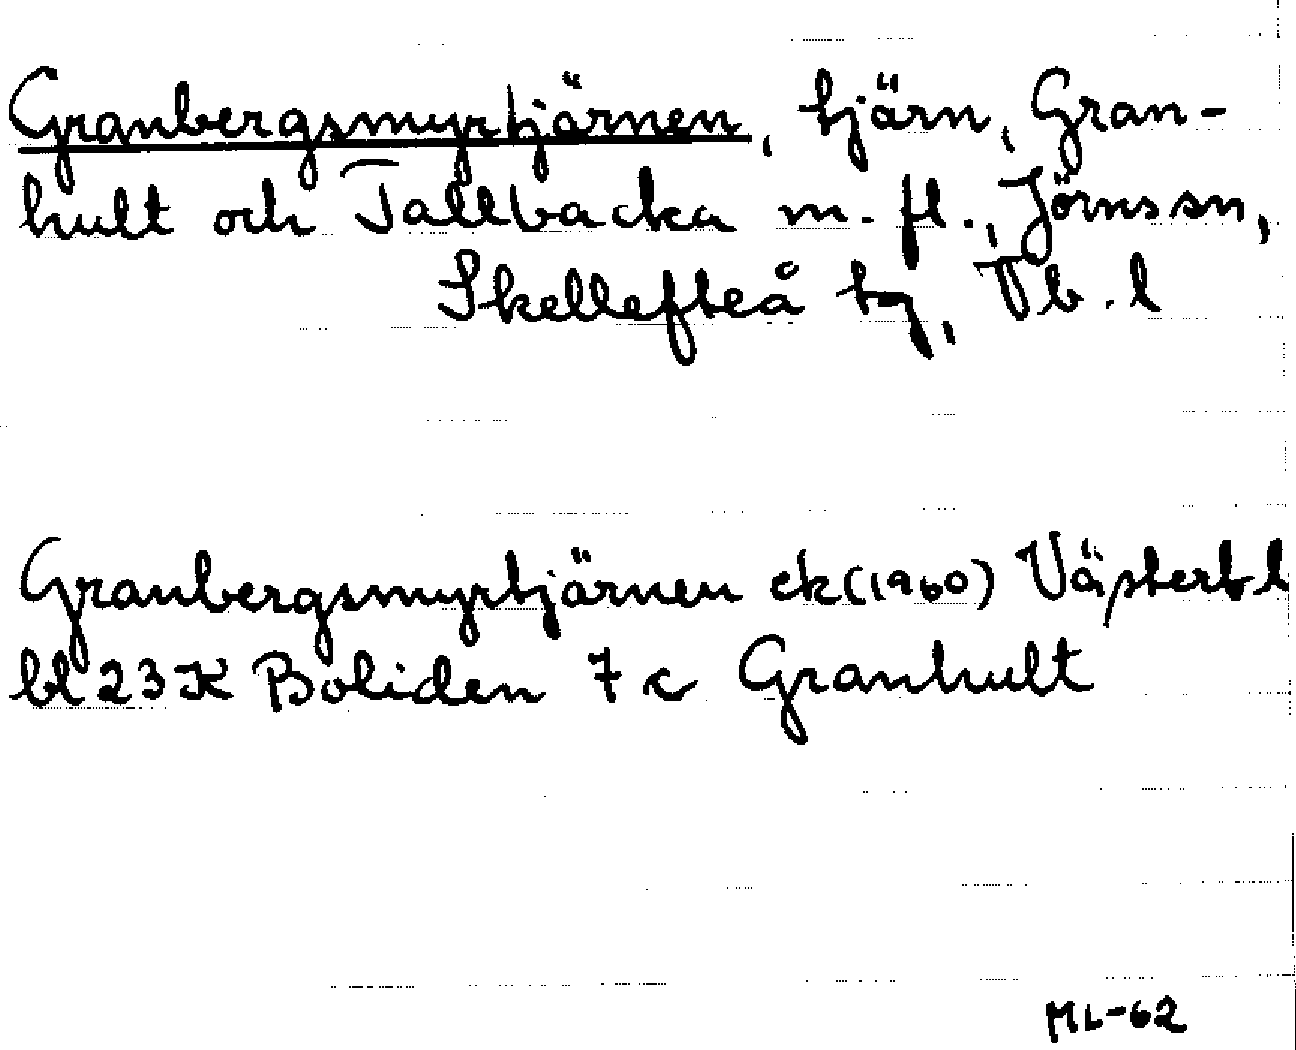 Granbergsmyrtjärnen, tjärn, Gran-
hult och Tallbacka m. fl., Jörns sn,
Skellefteå tg, Vb. l
Granbergsmyrtjärnen ek (1960) Västerb l
bl 23 K Boliden 7 c Granhult
ML-62